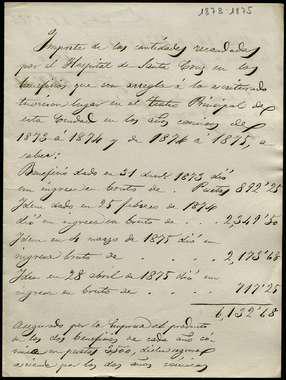 1873-1875
Importe de las cantidades recaudadas
por el Hospital de Santa Cruz en los
beneficios que con arreglo á lo escriturado
tuvieron lugar en el teatro Principal de
esta Ciudad en los años cómicos de
1873 á 1874 y de 1874 á 1875, a
saber:
Beneficio dado en 31 1873 dió
un ingreso en bruto de . Pesetas 892'25
Idem dado en 25 febrero de 1874
dió un ingreso en bruto de . . 2,349'50
Idem en 4 marzo de 1875 dió un
ingreso bruto de . . . 2,173'68
Idem en 28 abril de 1875 dió un
ingreso en bruto de . . 717'25
6,132'68
Asegurado por la Empresa el producto
de los dos beneficios de cada año có-
mico en pesetas dicho ingreso
asciende por los dos años